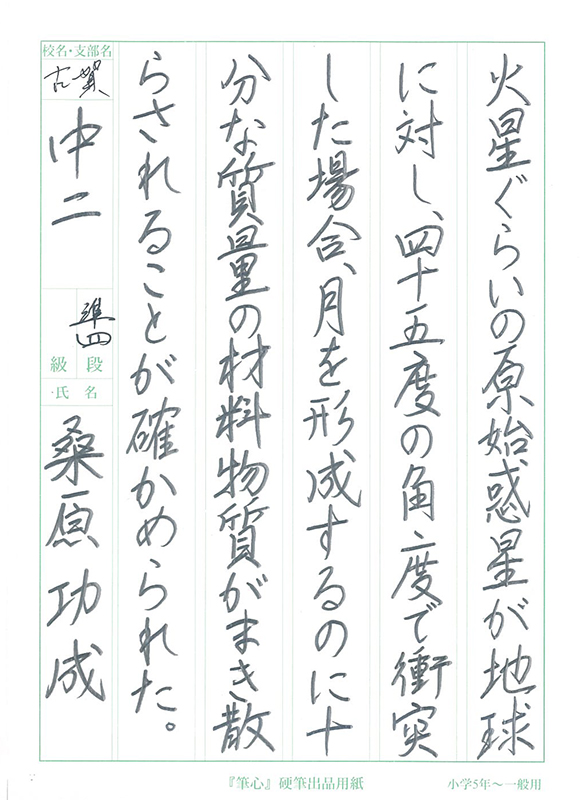 火星ぐらいの原始惑星が地球
に対し、四十五度の角度で衝突
した場合、月を形成するのに十
分な質量の材料物質がまき散
らされることが確かめられた。
校名・支部名
古賀
中二
準四
級 段
氏 名
桑原功成
『筆心』硬筆出品用紙
小学5年〜一般用